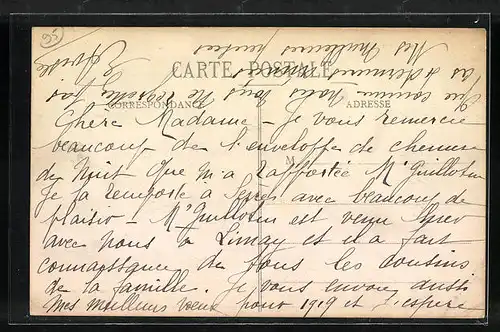 35
CARTE POSTALE
CORRESPONDANCE
ADRESSE
M
Chère Madame – Je vous remercie
beaucoup de l'enveloppe de chemise
de nuit que m'a rapportée Mr Guillotin
Je la remporte à avec beaucoup de
plaisir – Mr Guillotin est venu hier
avec nous à Limay et il a fait
connaissance de tous les cousins
de la famille. Je vous envoie aussi
mes meilleurs vœux pour 1919 et j'espère
que comme nous vous ne
les
Mes meilleures